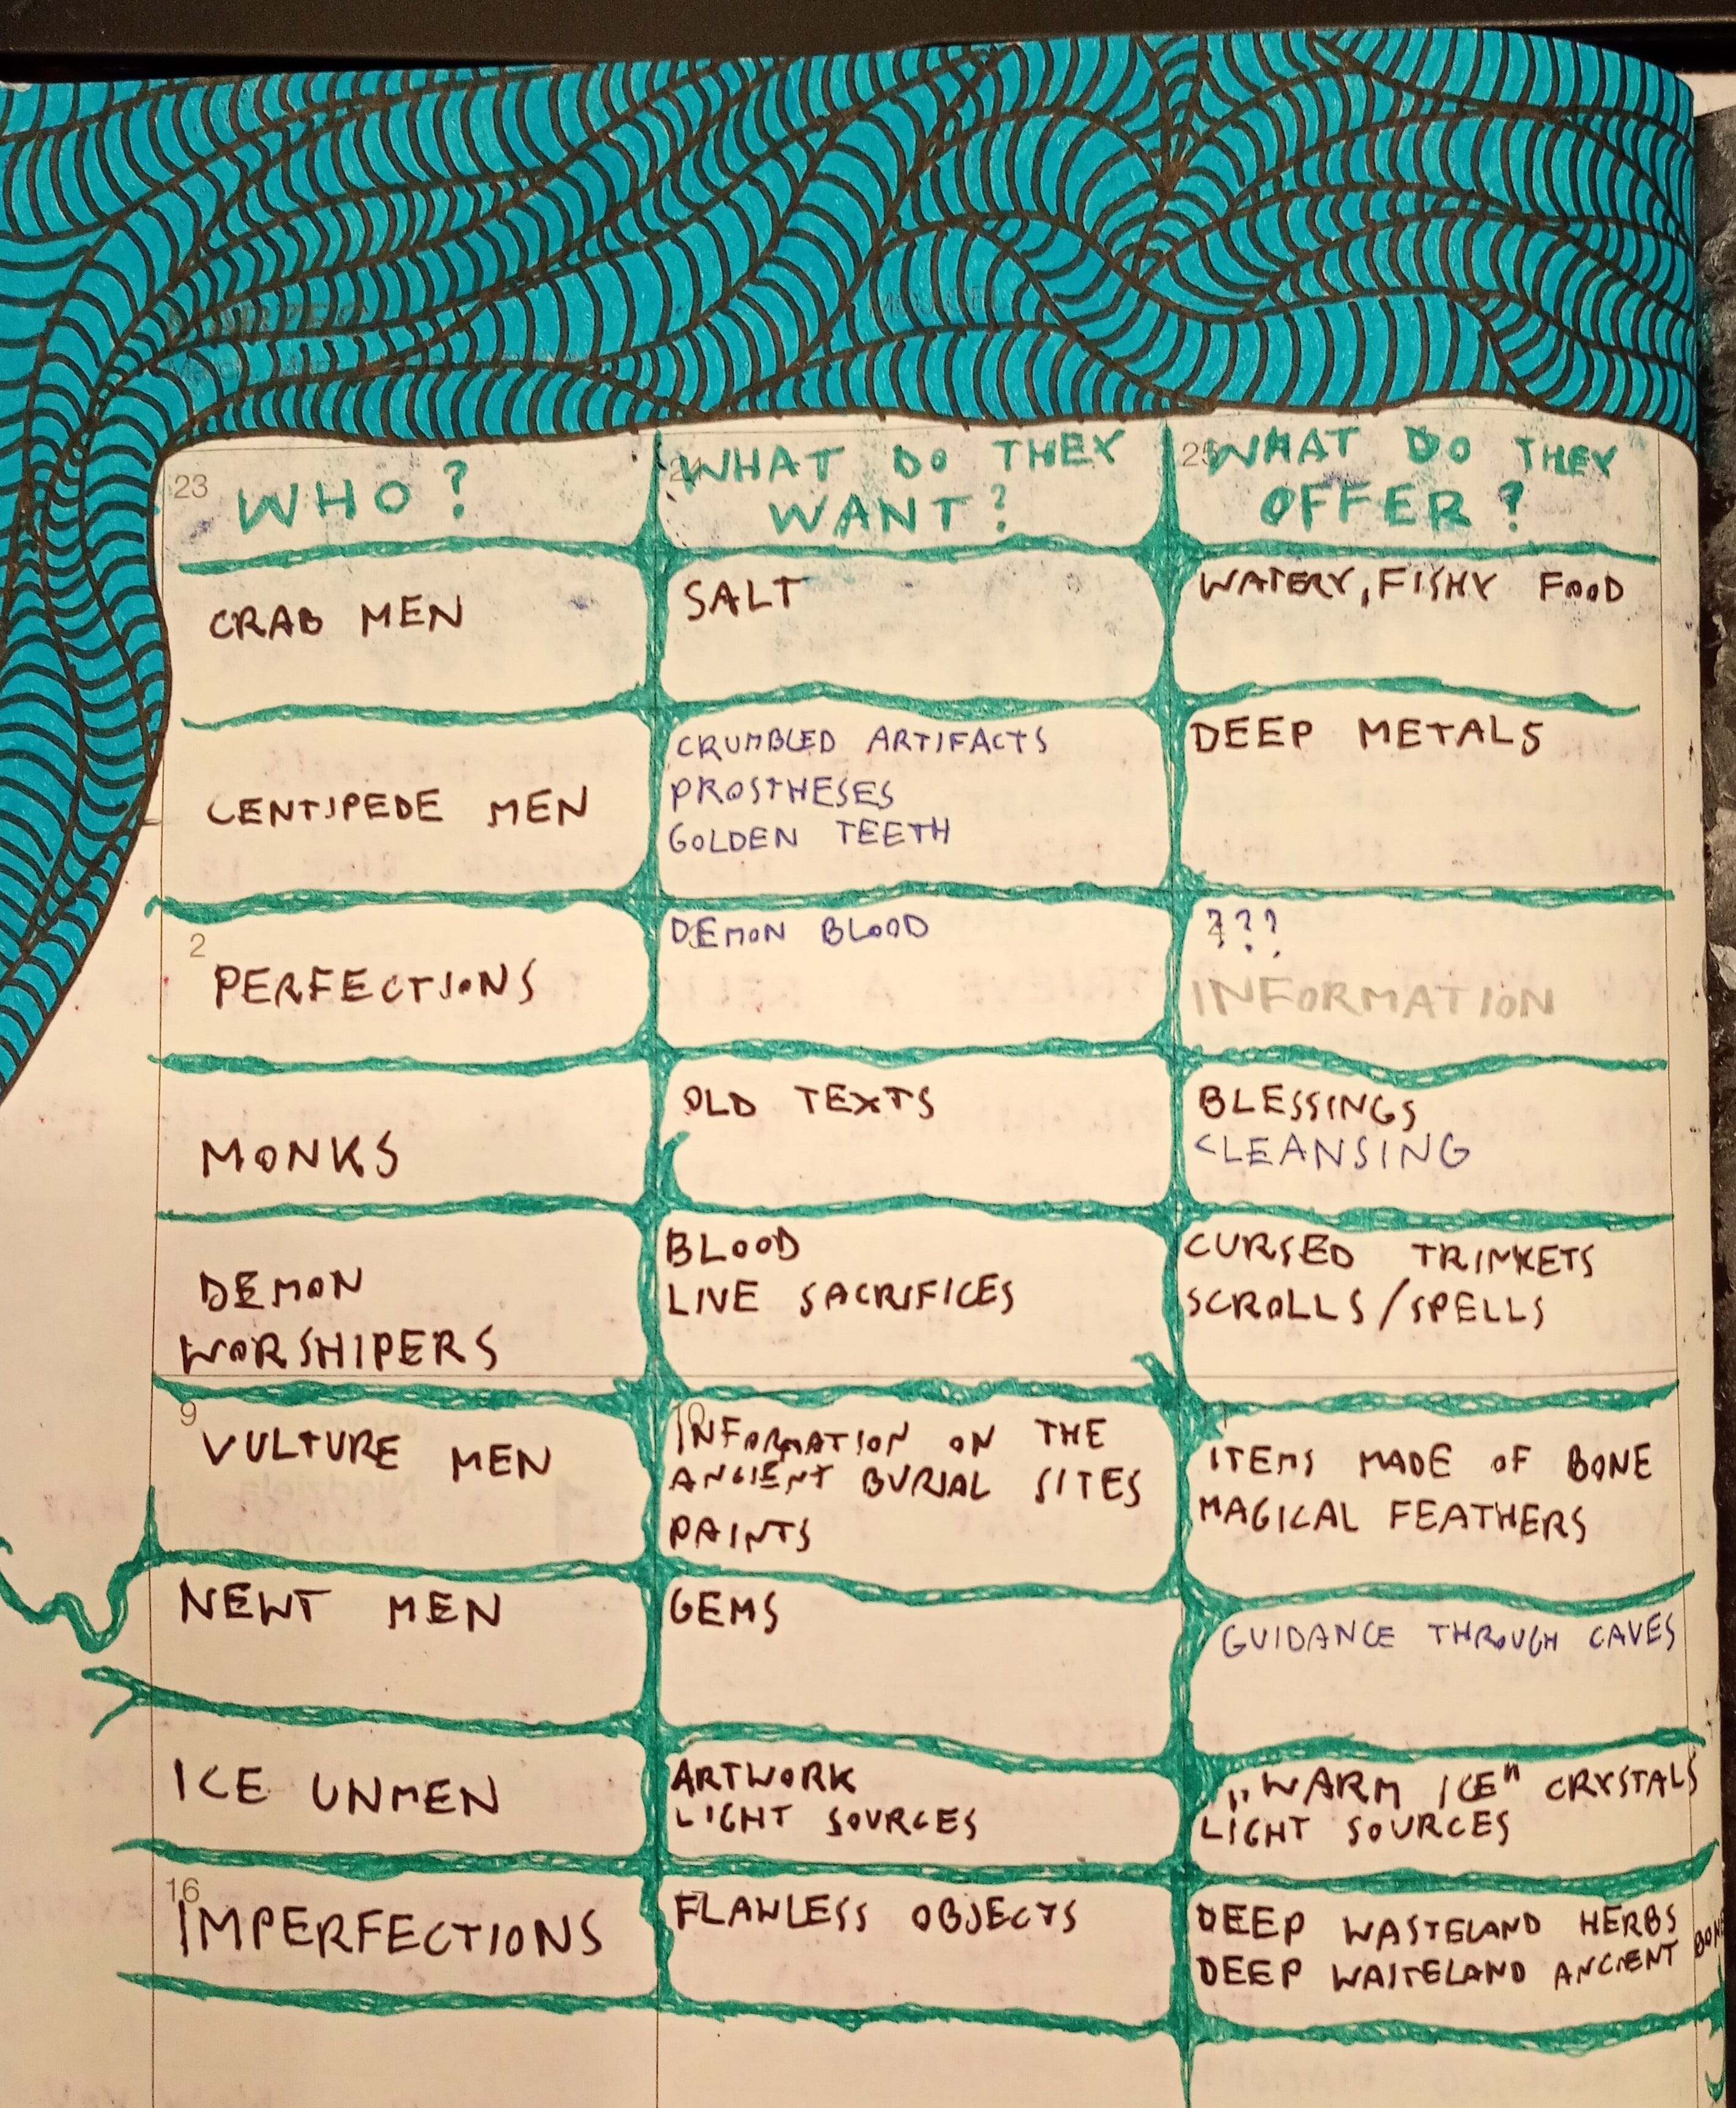 23 WHO?
WHAT DO THEY
WANT?
25 WHAT DO THEY
OFFER?
CRAB MEN
SALT
WATERY, FISHY FOOD
CENTIPEDE MEN
CRUMBLED ARTIFACTS
PROSTHESES
GOLDEN TEETH
DEEP METALS
2
PERFECTIONS
DEMON BLOOD
???
INFORMATION
MONKS
OLD TEXTS
BLESSINGS
CLEANSING
DEMON
WORSHIPERS
BLOOD
LIVE SACRIFICES
CURSED TRINKETS
SCROLLS/SPELLS
9
VULTURE MEN
INFORMATION ON THE
ANCIENT BURIAL SITES
PAINTS
ITEMS MADE OF BONE
MAGICAL FEATHERS
NEWT MEN
GEMS
GUIDANCE THROUGH CAVES
ICE UNMEN
ARTWORK
LIGHT SOURCES
„WARM ICE" CRYSTALS
LIGHT SOURCES
16
IMPERFECTIONS
FLAWLESS OBJECTS
DEEP WASTELAND HERBS
DEEP WASTELAND ANCIENT